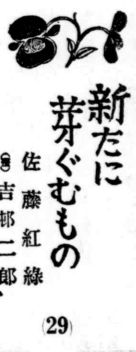 新たに
芽ぐむもの
佐藤紅緑
(画)吉邨二郎
(29)